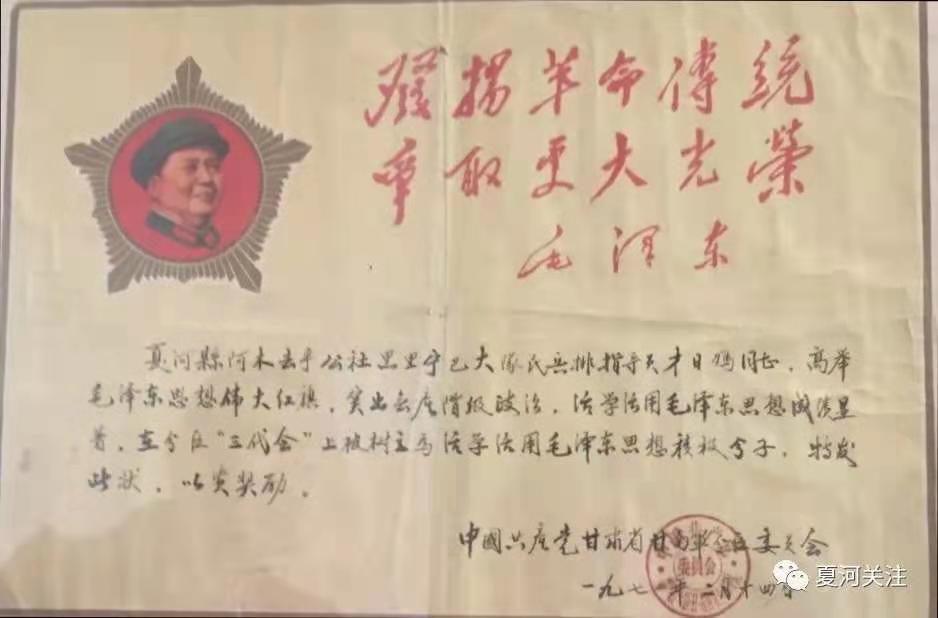 發揚革命傳統
爭取更大光榮
毛泽东
夏河縣阿木去乎公社黑里宁巴大隊民兵排指导员才日鸡同志，高举
毛泽东思想伟大红旗，突出无产阶级政治，活学活用毛泽东思想成绩显
著，在分区“三代会”上被树立为活学活用毛泽东思想积极分子，特发
此状，以资奖励。
中國共产党甘肃省甘南军分区委员会
委員会
一九七一年二月十四日
夏河关注